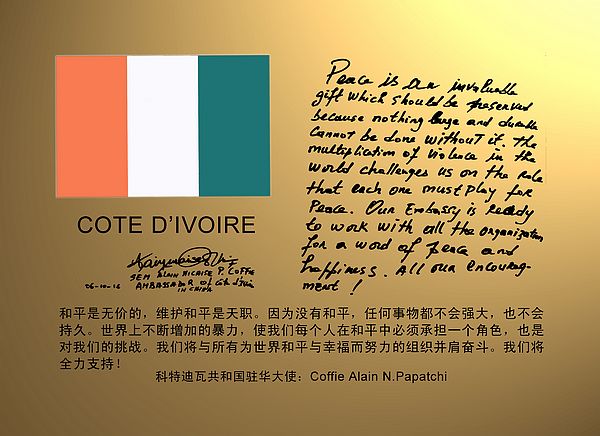 COTE D'IVOIRE
SEM ALAIN NICAISE P. COFFIE
06-10-16 AMBASSADOR of Côte d'Ivoire
IN CHINA
Peace is an invaluable
gift which should be preserved
because nothing large and durable
cannot be done without it. The
multiplication of violence in the
world challenges us on the role
that each one must play for
Peace. Our Embassy is ready
to work with all the organization
for a word of peace and
happiness. All our encourage-
ment !
和平是无价的，维护和平是天职。因为没有和平，任何事物都不会强大，也不会
持久。世界上不断增加的暴力，使我们每个人在和平中必须承担一个角色，也是
对我们的挑战。我们将与所有为世界和平与幸福而努力的组织并肩奋斗。我们将
全力支持！
科特迪瓦共和国驻华大使：Coffie Alain N.Papatchi